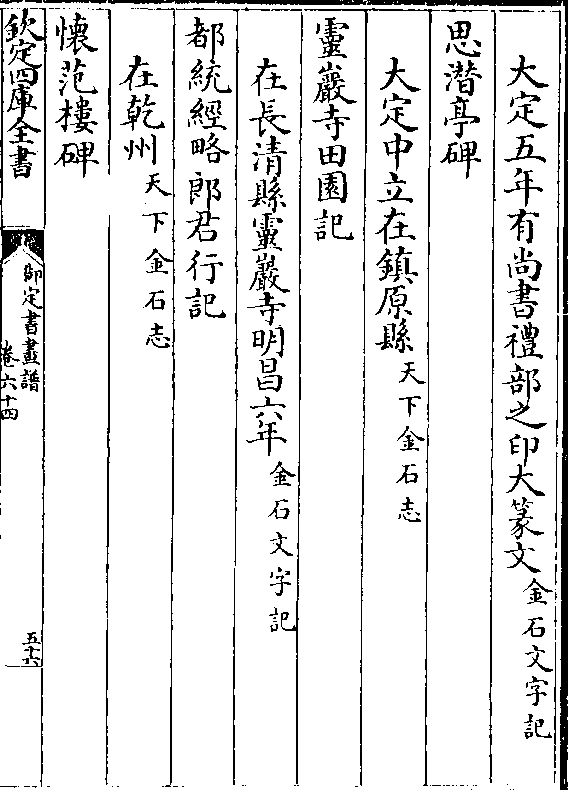 大定五年有尚書禮部之印大篆文金石文字記
思潛亭碑
大定中立在鎮原縣天下金石志
靈巖寺田園記
在長清縣靈巖寺明昌六年金石文字記
都統經略郎君行記
在乾州天下金石志
懷范樓碑
欽定四庫全書
御定書畫譜
卷六十四
五十六